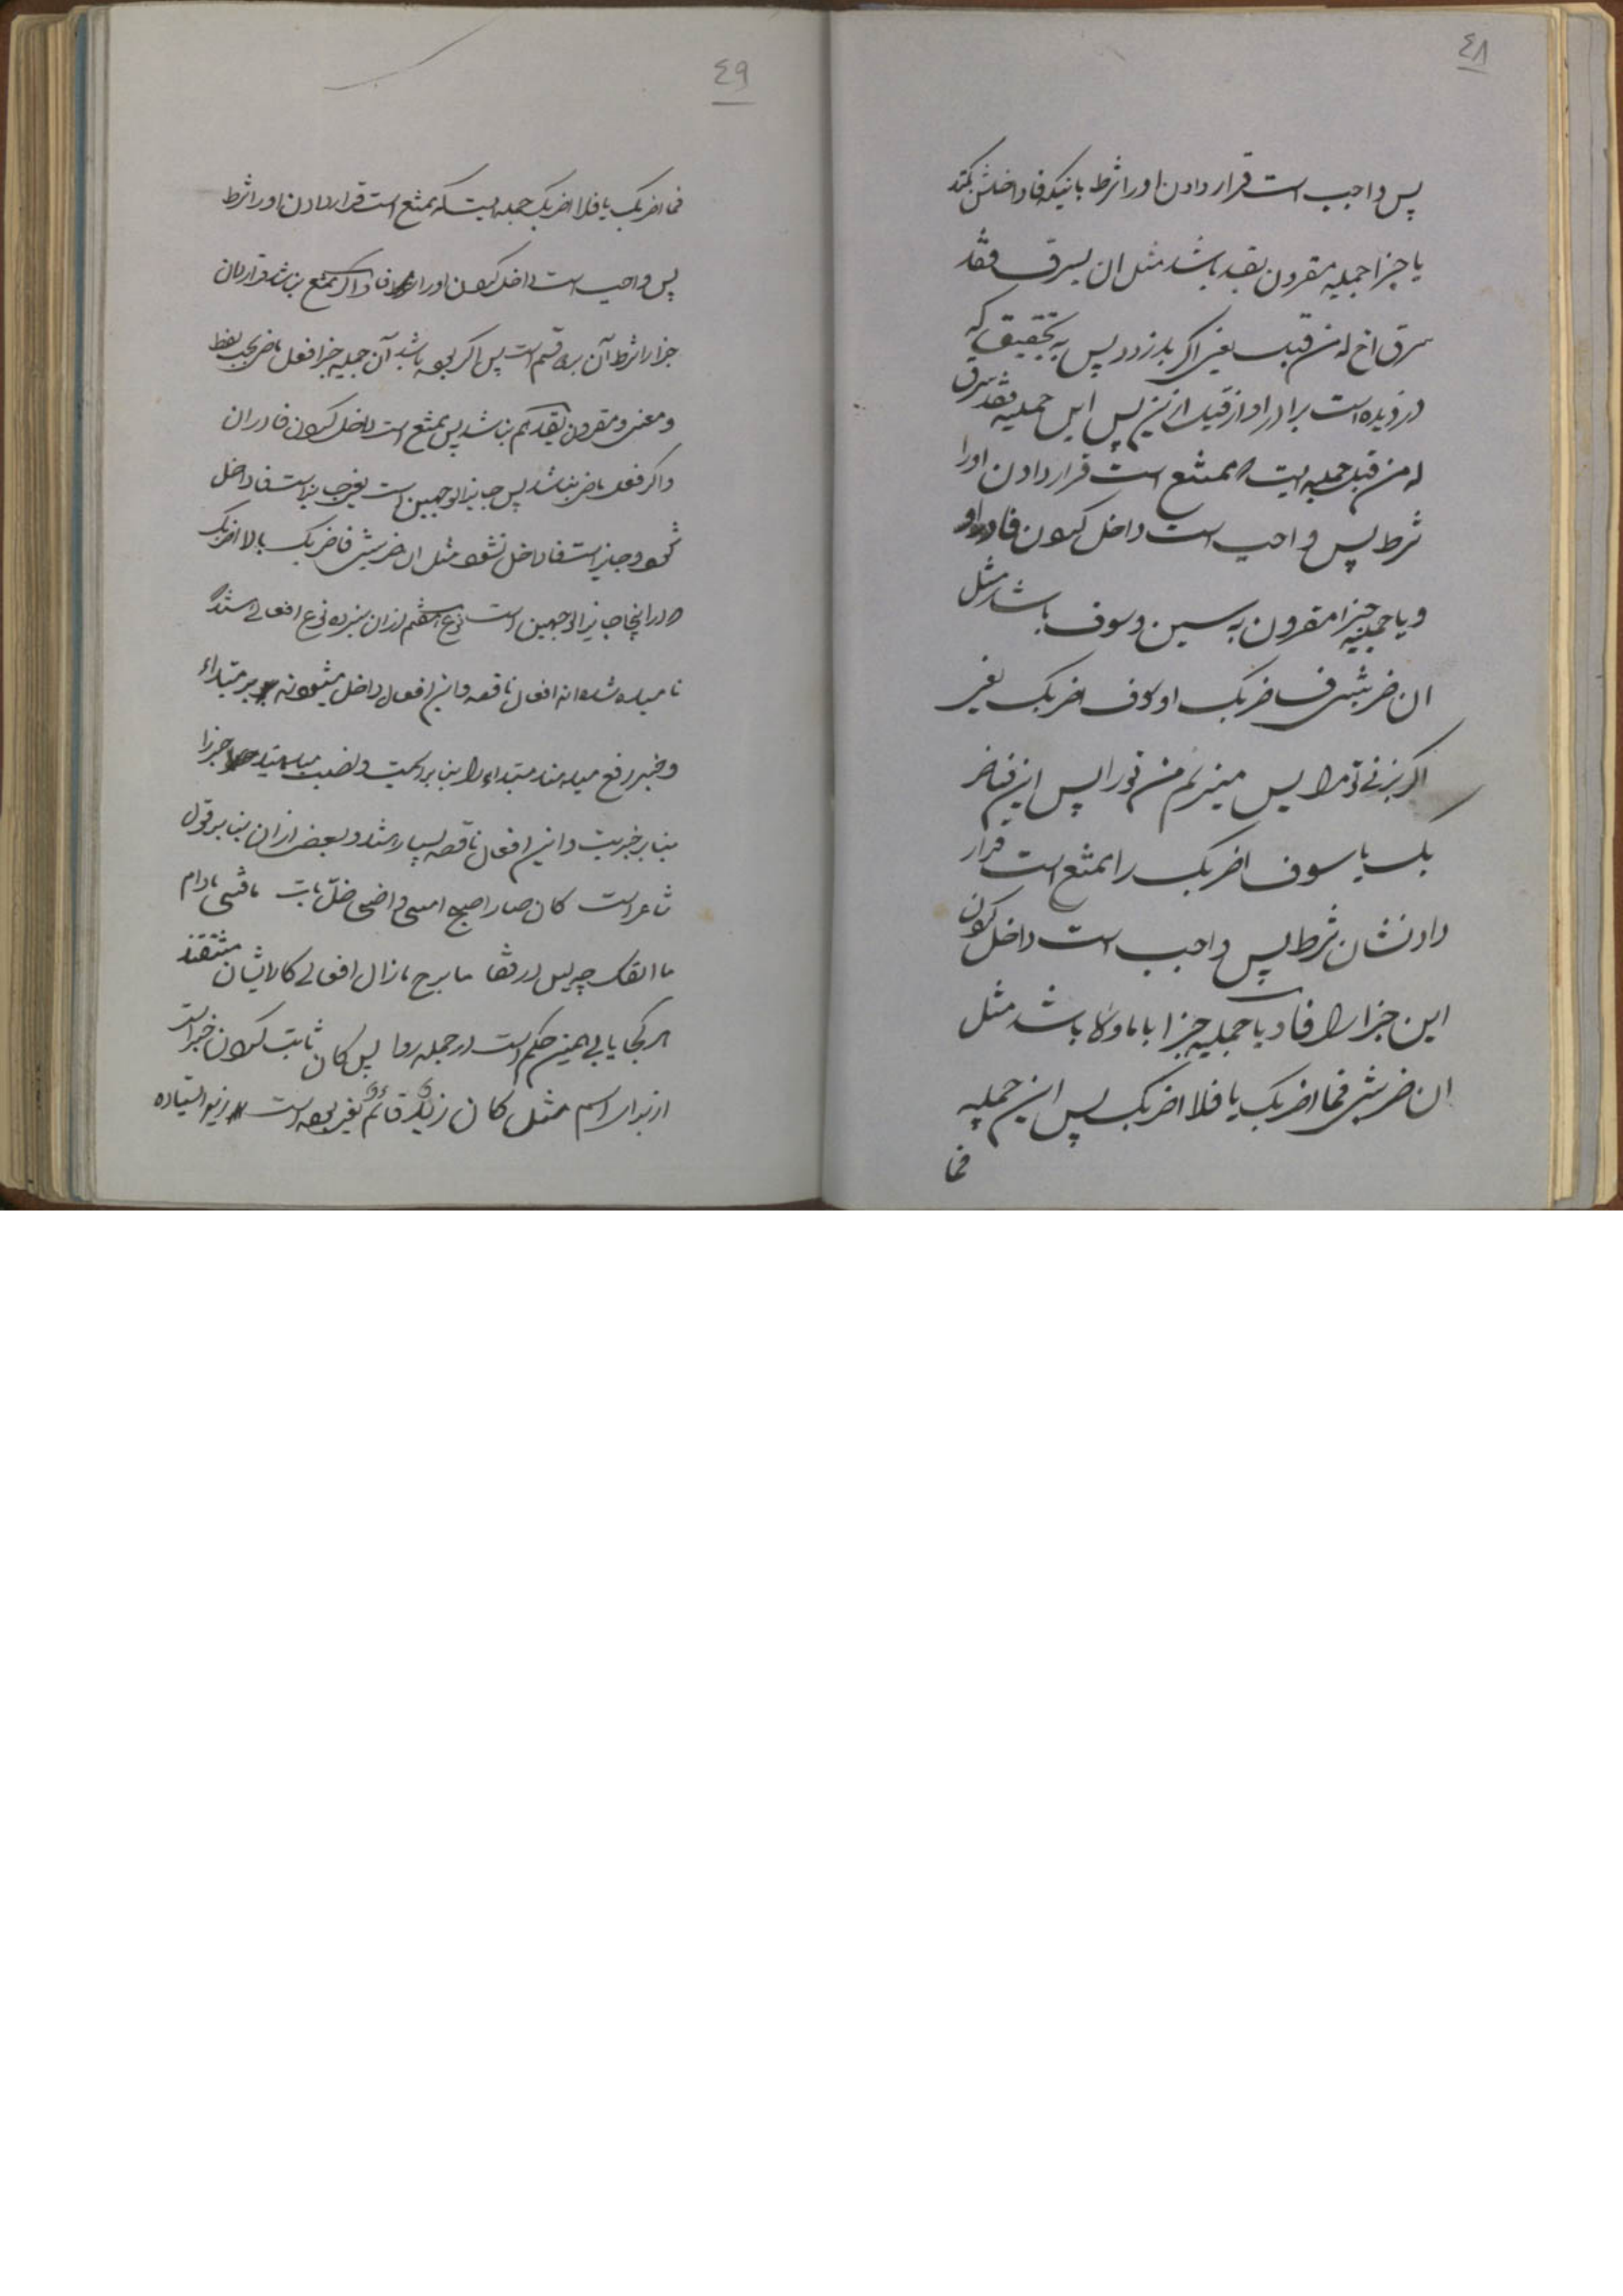 ٤٨
پس واجب است قرار دادن اورا شرط باینکه فا داخلش نکند
یا جزا جملیه مقرون بقد باشد مثل ان یسرق فقد
سرق اخ له من قبل یعنی اگر بدزدد پس به تحقیق که
دزدیده است برادر او از قبل از این پس این جملیه فقد سرق
له من قبل جملیه ایست که ممتنع است قرار دادن اورا
شرط پس واجب است داخل کردن فا در او
و یا جملیه جزا مقرون به سین و سوف باشد مثل
ان ضربتنی فساضربک او سوف اضربک یعنی
اگر بزنی تو مرا پس میزنم من تورا پس این فساضر
بک یا سوف اضربک را ممتنع است قرار
دادنشان شرط پس واجب است داخل کردن
این جزا را فا و یا جملیه جزا با ما و لا باشد مثل
ان ضربتنی فما اضربک یا فلا اضربک پس این جملیه
فما
٤٩
فما اضربک یا فلا اضربک جمله ایست که ممتنع است قرار دادن اورا شرط
پس واجب است داخل کردن اورا فا و اگر ممتنع نباشد قرار دادن
جزا را شرط آن بر دو قسم است پس اگر بوده باشد آن جملیه جزا فعل ماضی بحسب لفظ
و معنی و مقرون بقد هم نباشد پس ممتنع است داخل کردن فا در آن
و اگر فعل ماضی نباشد پس جایز الوجهین است یعنی جایز است فا داخل
شود و جایز است فا داخل نشود مثل ان ضربتنی فاضربک یا لا اضربک
که در اینجا جایز الوجهین است نوع هشتم از آن سیزده نوع افعالی استکه
نامیده شده اند افعال ناقصه و این افعال داخل میشوند بر مبتداء
و خبر رفع میدهند مبتداء را بنا بر اسمیت و نصب میدهند خبر را
بنا بر خبریت و این افعال ناقصه بسیارند و بعضی از آن بنا بر قول
شاعر است کان صار اصبح امسی و اضحی ظل بات مافتی مادام
ما انفک چه لیس در قفا ما برح مازال افعالی کز ایشان مشتقند
هر کجا یابی همین حکم است در جمله روا پس کان ثابت کردن خبر است
از برای اسم مثل کان زیدٌ قائمٌ یعنی بوده است زید ایستاده